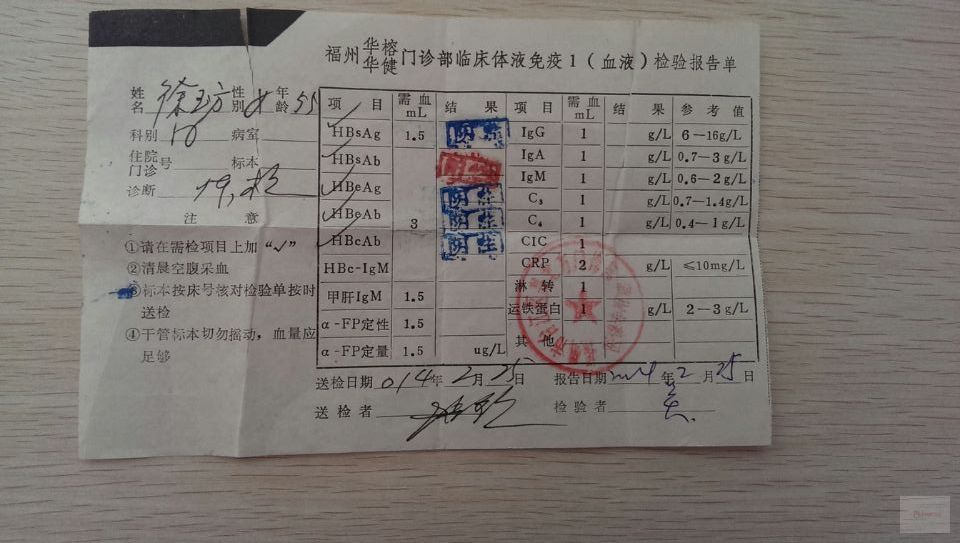 福州华榕华健门诊部临床体液免疫1（血液）检验报告单
姓名 性别 女 年龄 55
科别 病室
住院门诊号 标本
诊断
注 意
①请在需检项目上加“✓”
②清晨空腹采血
③标本按床号核对检验单按时送检
④干管标本切勿摇动，血量应足够
项 目 需血mL 结 果 项 目 需血mL 结 果 参 考 值
HBsAg 1.5 阴性 IgG 1 g/L 6－16g/L
HBsAb IgA 1 g/L 0.7－3g/L
HBeAg 阴性 IgM 1 g/L 0.6－2g/L
C₃ 1 g/L 0.7－1.4g/L
HBeAb 3 阴性 C₄ 1 g/L 0.4－1g/L
HBcAb 阴性 CIC 1
HBc-IgM CRP 2 g/L ≤10mg/L
甲肝IgM 1.5 淋 转 1
运铁蛋白 1 g/L 2－3g/L
α-FP定性 1.5 其 他
α-FP定量 1.5 ug/L
送检日期 014年2月25日 报告日期 2014年2月25日
送 检 者 检 验 者